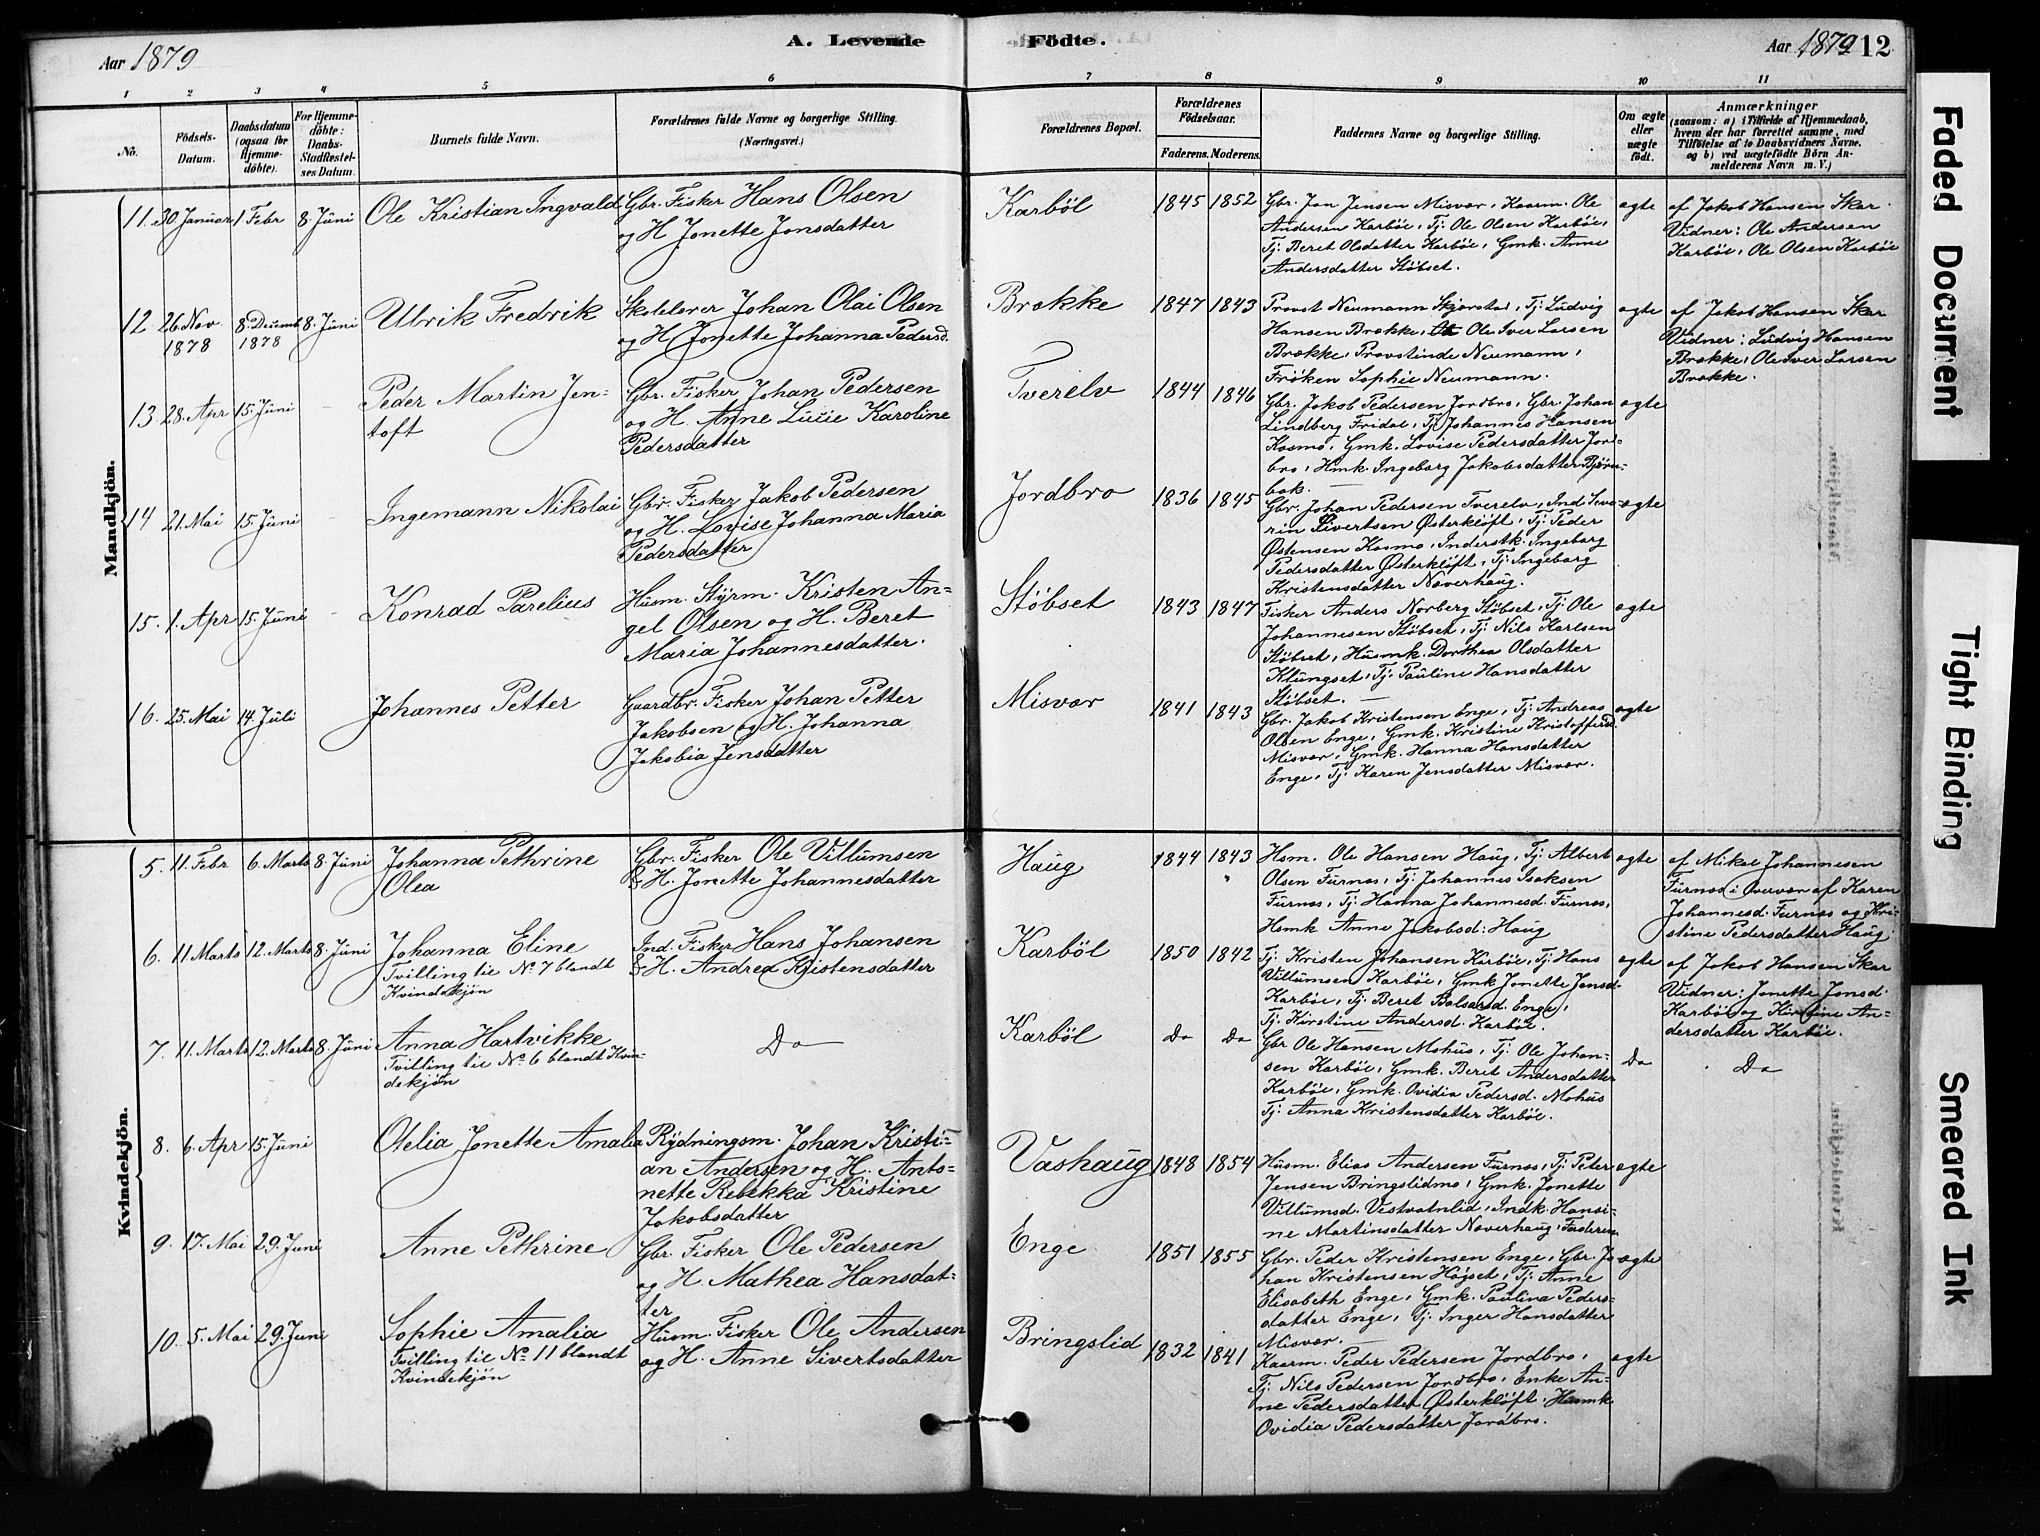 Aar 1879
A. Levende Födte.
Aar 1879 12
1 2 3 4 5 6 7 8 9 10 11
No.
Födsels-Datum.
Daabsdatum (ogsaa for Hjemme-döbte).
For Hjemme-döbte: Daabs-Stadfæstel-ses Datum.
Barnets fulde Navn.
Forældrenes fulde Navne og borgerlige Stilling. (Næringsvei.)
Forældrenes Bopæl.
Forældrenes Födselsaar.
Faderens. Moderens.
Faddernes Navne og borgerlige Stilling.
Om ægte eller uægte födt.
Anmærkninger
(saasom: a) i Tilfælde af Hjemmedaab,
hvem der har forrettet samme, med
Tilföielse af to Daabsvidners Navne.
og b) ved uægtefödte Börn An-
melderens Navn m. V.)
Mandkjön.
11. 30. Januar 1 Febr 8. Juni
Ole Kristian Ingvald
Gbr. Fisker Hans Olsen
og H. Jonette Jonsdatter
Karböl
1845 1852
Gbr. Jon Jensen Misvær, Kaarm. Ole
Andersen Karböe, Tj. Ole Olsen Karböe,
Tj. Beret Olsdatter Karböe, Gmk. Anne
Andersdatter Stöbset.
ægte
af Jakob Hansen Skar.
Vidner: Ole Andersen
Karböe, Ole Olsen Karböe
12 26. Nov 1878 8. Decemb 1878 8. Juni
Ulrik Fredrik
Skolelærer Johan Olai Olsen
og H. Jonette Johanna Pedersd.
Brække
1847 1843
Provst Neumann Skjerstad, Tj. Ludvig
Hansen Brække, Ole Iver Larsen
Brække, Provstinde Neumann,
Fröken Sophie Neumann.
ægte
af Jakob Hansen Skar
Vidner: Ludvig Hansen
Brække, Ole Iver Larsen
Brække.
13. 28. Apr 15. Juni
Peder Martin Jen-
toft
Gbr. Fisker Johan Pedersen
og H. Anne Lucie Karoline
Pedersdatter
Tverelv
1844 1846
Gbr. Jakob Pedersen Jordbro, Gbr. Johan
Lindberg Fridal, Tj. Johannes Hansen
Kosmo, Gmk. Lovise Pedersdatter Jord-
bro, Hmk. Ingeborg Jakobsdatter Björn-
bak.
ægte
14 21. Mai 15. Juni
Ingemann Nikolai
Gbr. Fisker Jakob Pedersen
og H. Lovise Johanna Maria
Pedersdatter
Jordbro
1836 1845
Gbr. Johan Pedersen Tverelv, Ind. Seve-
rin Sivertsen Österklöft, Tj. Peder
Östensen Kosmo, Inderstk. Ingeborg
Pedersdatter Österklöft, Tj. Ingeborg
Kristensdatter Naverhaug.
ægte
15. 1. Apr 15. Juni
Konrad Parelius
Husm. Styrm. Kristen An-
gel Olsen og H. Beret
Maria Johannesdatter.
Stöbset
1843 1847
Fisker Anders Norberg Stöbset, Tj. Ole
Johannesen Stöbset, Tj. Nils Karlsen
Stöbset, Husmk. Dorthea Olsdatter
Klungset, Tj. Pauline Hansdatter
Stöbset.
ægte
16. 25. Mai 14. Juli
Johannes Petter
Gaardbr. Fisker Johan Petter
Jakobsen og H. Johanna
Jakobia Jensdatter
Misvær
1841 1843
Gbr. Jakob Kristensen Enge, Tj. Andreas
Olsen Enge, Gmk. Kristine Kristoffersd.
Misvær, Gmk. Hanna Hansdatter
Enge, Tj. Karen Jensdatter Misvær.
ægte
Kvindekjön.
5. 11. Febr 6. Marts 8. Juni
Johanna Pethrine
Olea
Gbr. Fisker Ole Villumsen
& H. Jonette Johannesdatter
Haug
1844 1843
Hsm. Ole Hansen Haug, Tj. Albert
Olsen Furnes, Tj. Johannes Isaksen
Furnes, Tj. Hanna Johannesd. Furnes,
Hsmk Anne Jakobsd. Haug
ægte
af Mikal Johannesen
Furnes i overvær af Karen
Johannesd. Furnes og Kri-
stine Pedersdatter Haug
6. 11 Marts 12. Marts 8. Juni
Johanna Eline
Tvilling til No 7 blandt
Kvindekjön
Ind. Fisker Hans Johansen
& H. Andrea Kristensdatter
Karböl
1850 1842
Tj. Kristen Johansen Karböe, Tj. Hans
Villumsen Karböe, Gmk Jonette Jonsd.
Karböe, Tj. Beret Balsarsd. Enge,
Tj. Kirstine Andersd. Karböe.
ægte
af Jakob Hansen Skar
Vidner: Jonette Jonsd.
Karböe og Kirstine An-
dersdatter Karböe.
7. 11. Marts 12. Marts 8. Juni
Anna Hartvikke
Tvilling til No 6 blandt Kvin-
dekjön
Do
Karböl
Do Do
Gbr Ole Hansen Mohus, Tj. Ole Johan-
sen Karböe, Gmk. Beret Andersdatter
Karböe, Gmk. Ovidia Pedersd. Mohus
Tj. Anna Kristensdatter Karböe.
Do
Do
8. 6. Apr 15. Juni
Otelia Jonette Amalia
Rydningsm. Johan Kristi-
an Andersen og H. Anto-
nette Rebekka Kristine
Jakobsdatter
Vashaug
1848 1854
Husm. Elias Andersen Furnes, Tj. Peter
Jensen Bringslidmo, Gmk. Jonette
Villumsd. Vestvatnlid, Indk. Hansi-
ne Martinsdatter Naverhaug, Faderen
ægte
9. 17. Mai 29. Juni
Anne Pethrine
Gbr. Fisker Ole Pedersen
og H. Mathea Hansdat-
ter
Enge
1851 1855
Gbr. Peder Kristensen Enge, Gbr. Jo-
han Kristensen Höjset, Tj. Anne
Elisabeth Enge, Gmk. Paulina Peders-
datter Enge, Tj. Inger Hansdatter
Misvær.
ægte
10. 5. Mai 29. Juni
Sophie Amalia
Tvilling til No 11 blandt
Kvindekjön
Husm. Fisker Ole Andersen
og H. Anne Sivertsdatter
Bringslid
1832 1841
Kaarm. Peder Pedersen Jordbro,
Tj. Nils Pedersen Jordbro, Enke An-
ne Pedersdatter Österklöft. Husmk
Ovidia Pedersdatter Jordbro.
ægte
Faded Document
Tight Binding
Smeared Ink